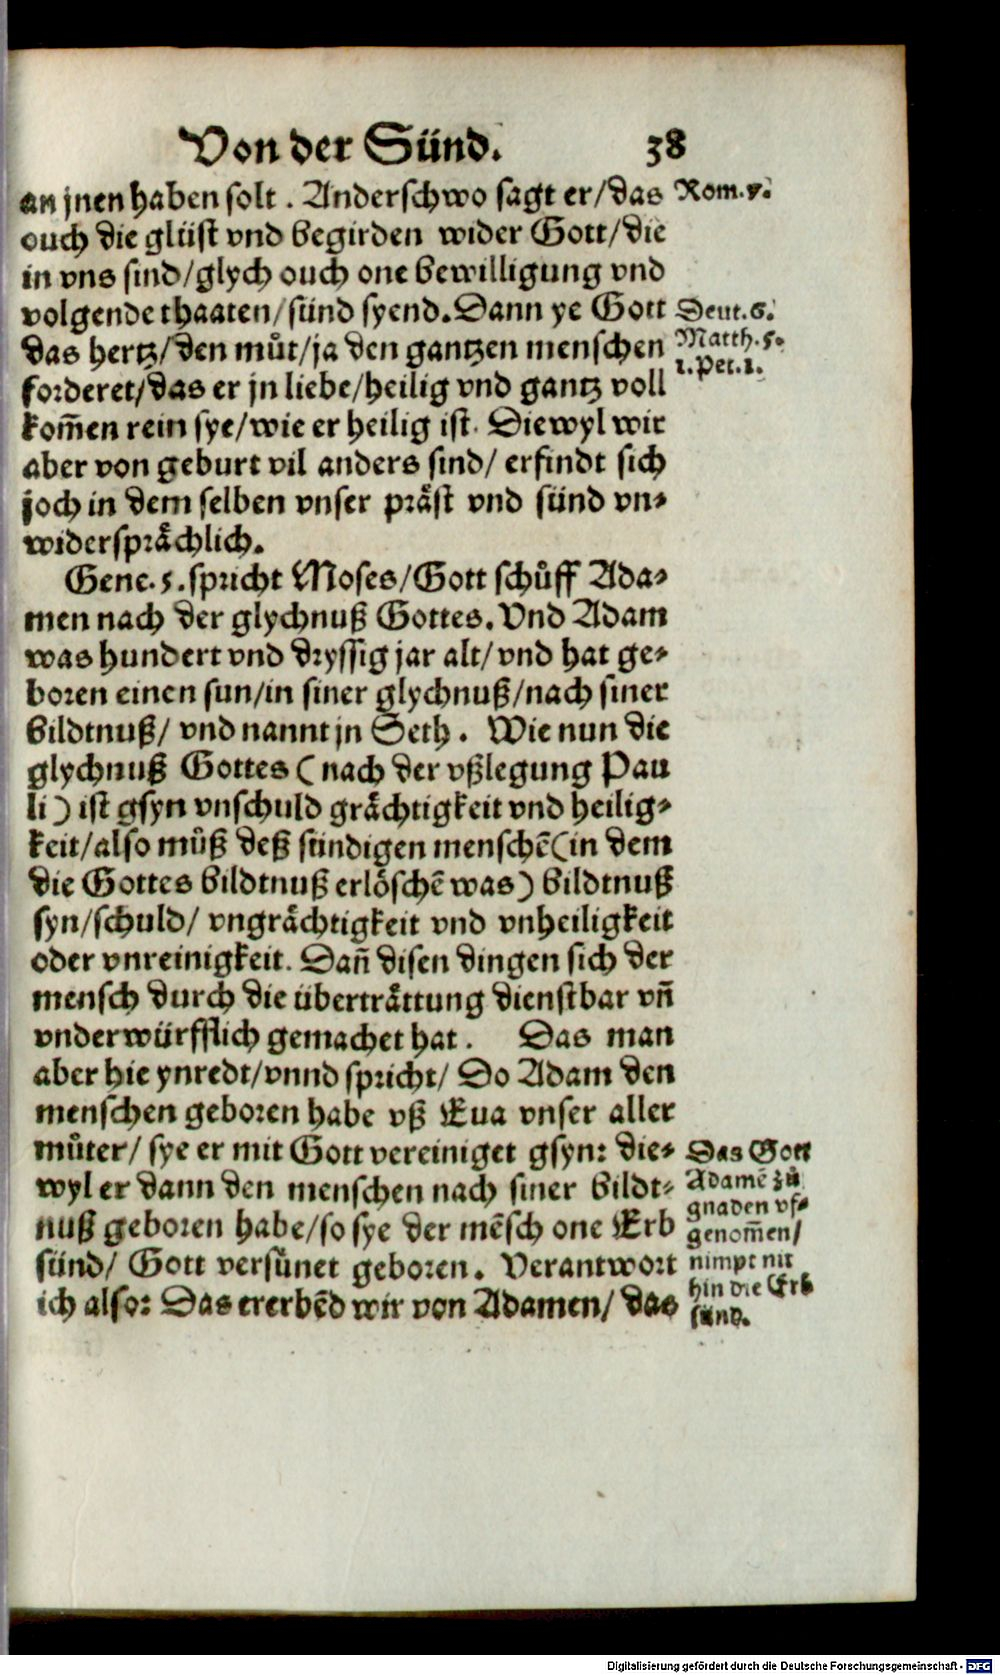 Von der Sünd. 38
an jnen haben solt . Anderschwo sagt er/das
Rom.7.
ouch die glüst vnd begirden wider Gott/die
in vns sind/glych ouch one bewilligung vnd
volgende thaaten/sünd syend. Dann ye Gott
Deut.6.
das hertz/den můt/ja den gantzen menschen
Matth.5.
forderet/das er jn liebe/heilig vnd gantz voll
1.Pet.1.
kom̃en rein sye/wie er heilig ist. Diewyl wir
aber von geburt vil anders sind/ erfindt sich
joch in dem selben vnser präst vnd sünd vn⸗
widersprächlich.
Gene.5.spricht Moses/Gott schůff Ada⸗
men nach der glychnuß Gottes. Vnd Adam
was hundert vnd dryssig jar alt/ vnd hat ge⸗
boren einen sun/in siner glychnuß/nach siner
bildtnuß/ vnd nannt jn Seth . Wie nun die
glychnuß Gottes ( nach der vßlegung Pau
li ) ist gsyn vnschuld grächtigkeit vnd heilig⸗
keit/also můß deß sündigen menschẽ(in dem
die Gottes bildtnuß erlöschẽ was) bildtnuß
syn/schuld/ vngrächtigkeit vnd vnheiligkeit
oder vnreinigkeit. Dañ disen dingen sich der
mensch durch die überträttung dienstbar vñ
vnderwürfflich gemachet hat . Das man
aber hie ynredt/vnnd spricht/ Do Adam den
menschen geboren habe vß Eua vnser aller
můter/ sye er mit Gott vereiniget gsyn: die⸗
wyl er dann den menschen nach siner bildt⸗
nuß geboren habe/so sye der mẽsch one Erb
sünd/ Gott versünet geboren. Verantwort
ich also: Das ererbẽd wir von Adamen/ das
Das Gott
Adamẽ zů
gnaden vf⸗
genom̃en/
nimpt nit
hin die Erb
sünd.
Digitalisierung gefördert durch die Deutsche Forschungsgemeinschaft - DFG